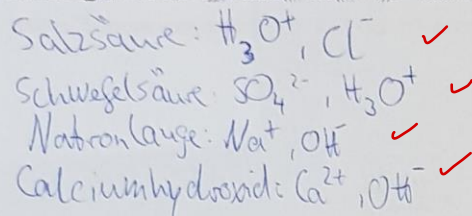 Salzsäure: H₃O⁺, Cl⁻
Schwefelsäure: SO₄²⁻, H₃O⁺
Natronlauge: Na⁺, OH⁻
Calciumhydroxid: Ca²⁺, OH⁻